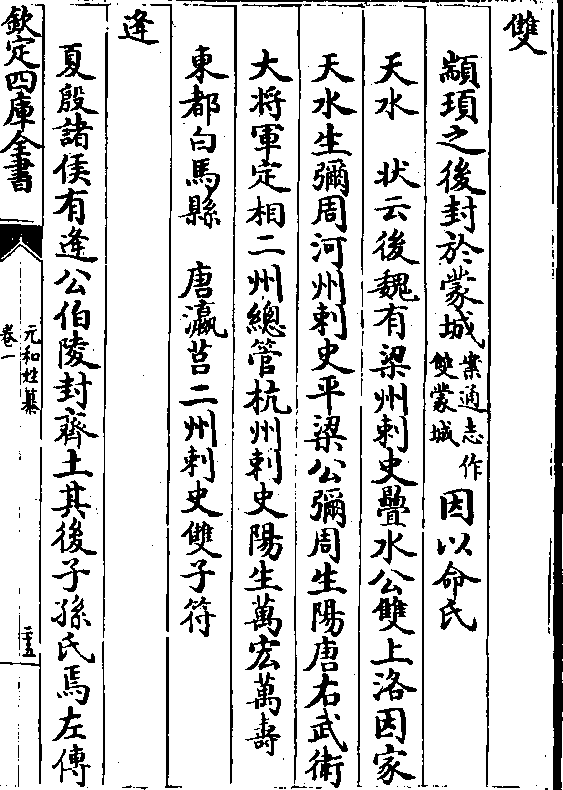 雙
顓頊之後封於蒙城案通志作雙蒙城因以命氏
天水　狀云後魏有梁州刺史疊水公雙上洛因家
天水生彌周河州刺史平梁公彌周生陽唐右武衛
大將軍定相二州總管杭州刺史陽生萬宏萬壽
東都白馬縣　唐瀛莒二州刺史雙子符
逄
夏殷諸侯有逄公伯陵封齊土其後子孫氏焉左傳
欽定四庫全書
元和姓纂
卷一
二五